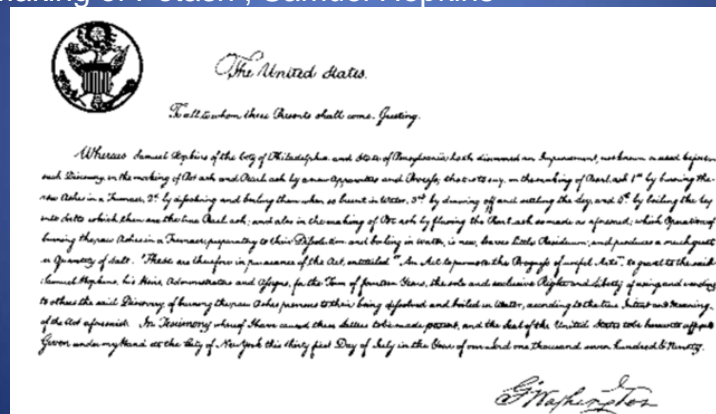 Making of Potash , Samuel Hopkins
The United States.
To all to whom these Presents shall come, Greeting.
Whereas Samuel Hopkins of the City of Philadelphia and State of Pensylvania hath discovered an Improvement, not known or used before
such Discovery, in the making of Pot ash and Pearl ash by a new Apparatus and Process; that is to say, in the making of Pearl ash 1st by burning the
raw Ashes in a Furnace, 2d by dissolving and boiling them when so burnt in Water, 3rd by drawing off and settling the Ley, and 4th by boiling the Ley
into Salts which then are the true Pearl ash; and also in the making of Pot ash by fluxing the Pearl ash so made as aforesaid; which Operation of
burning the raw Ashes in a Furnace, preparatory to their Dissolution and boiling in Water, is new, leaves little Residuum; and produces a much great
er Quantity of Salt: These are therefore in pursuance of the Act, entitled "An Act to promote the Progress of useful Arts", to grant to the said
Samuel Hopkins, his Heirs, Administrators and Assigns, for the Term of fourteen Years, the sole and exclusive Right and Liberty of using and vending
to others the said Discovery of burning the raw Ashes previous to their being dissolved and boiled in Water, according to the true Intent and Meaning
of the Act aforesaid. In Testimony whereof I have caused these Letters to be made patent, and the Seal of the United States to be hereunto affixed
Given under my Hand at the City of New York this thirty first Day of July in the Year of our Lord one thousand seven hundred & Ninety.
G. Washington